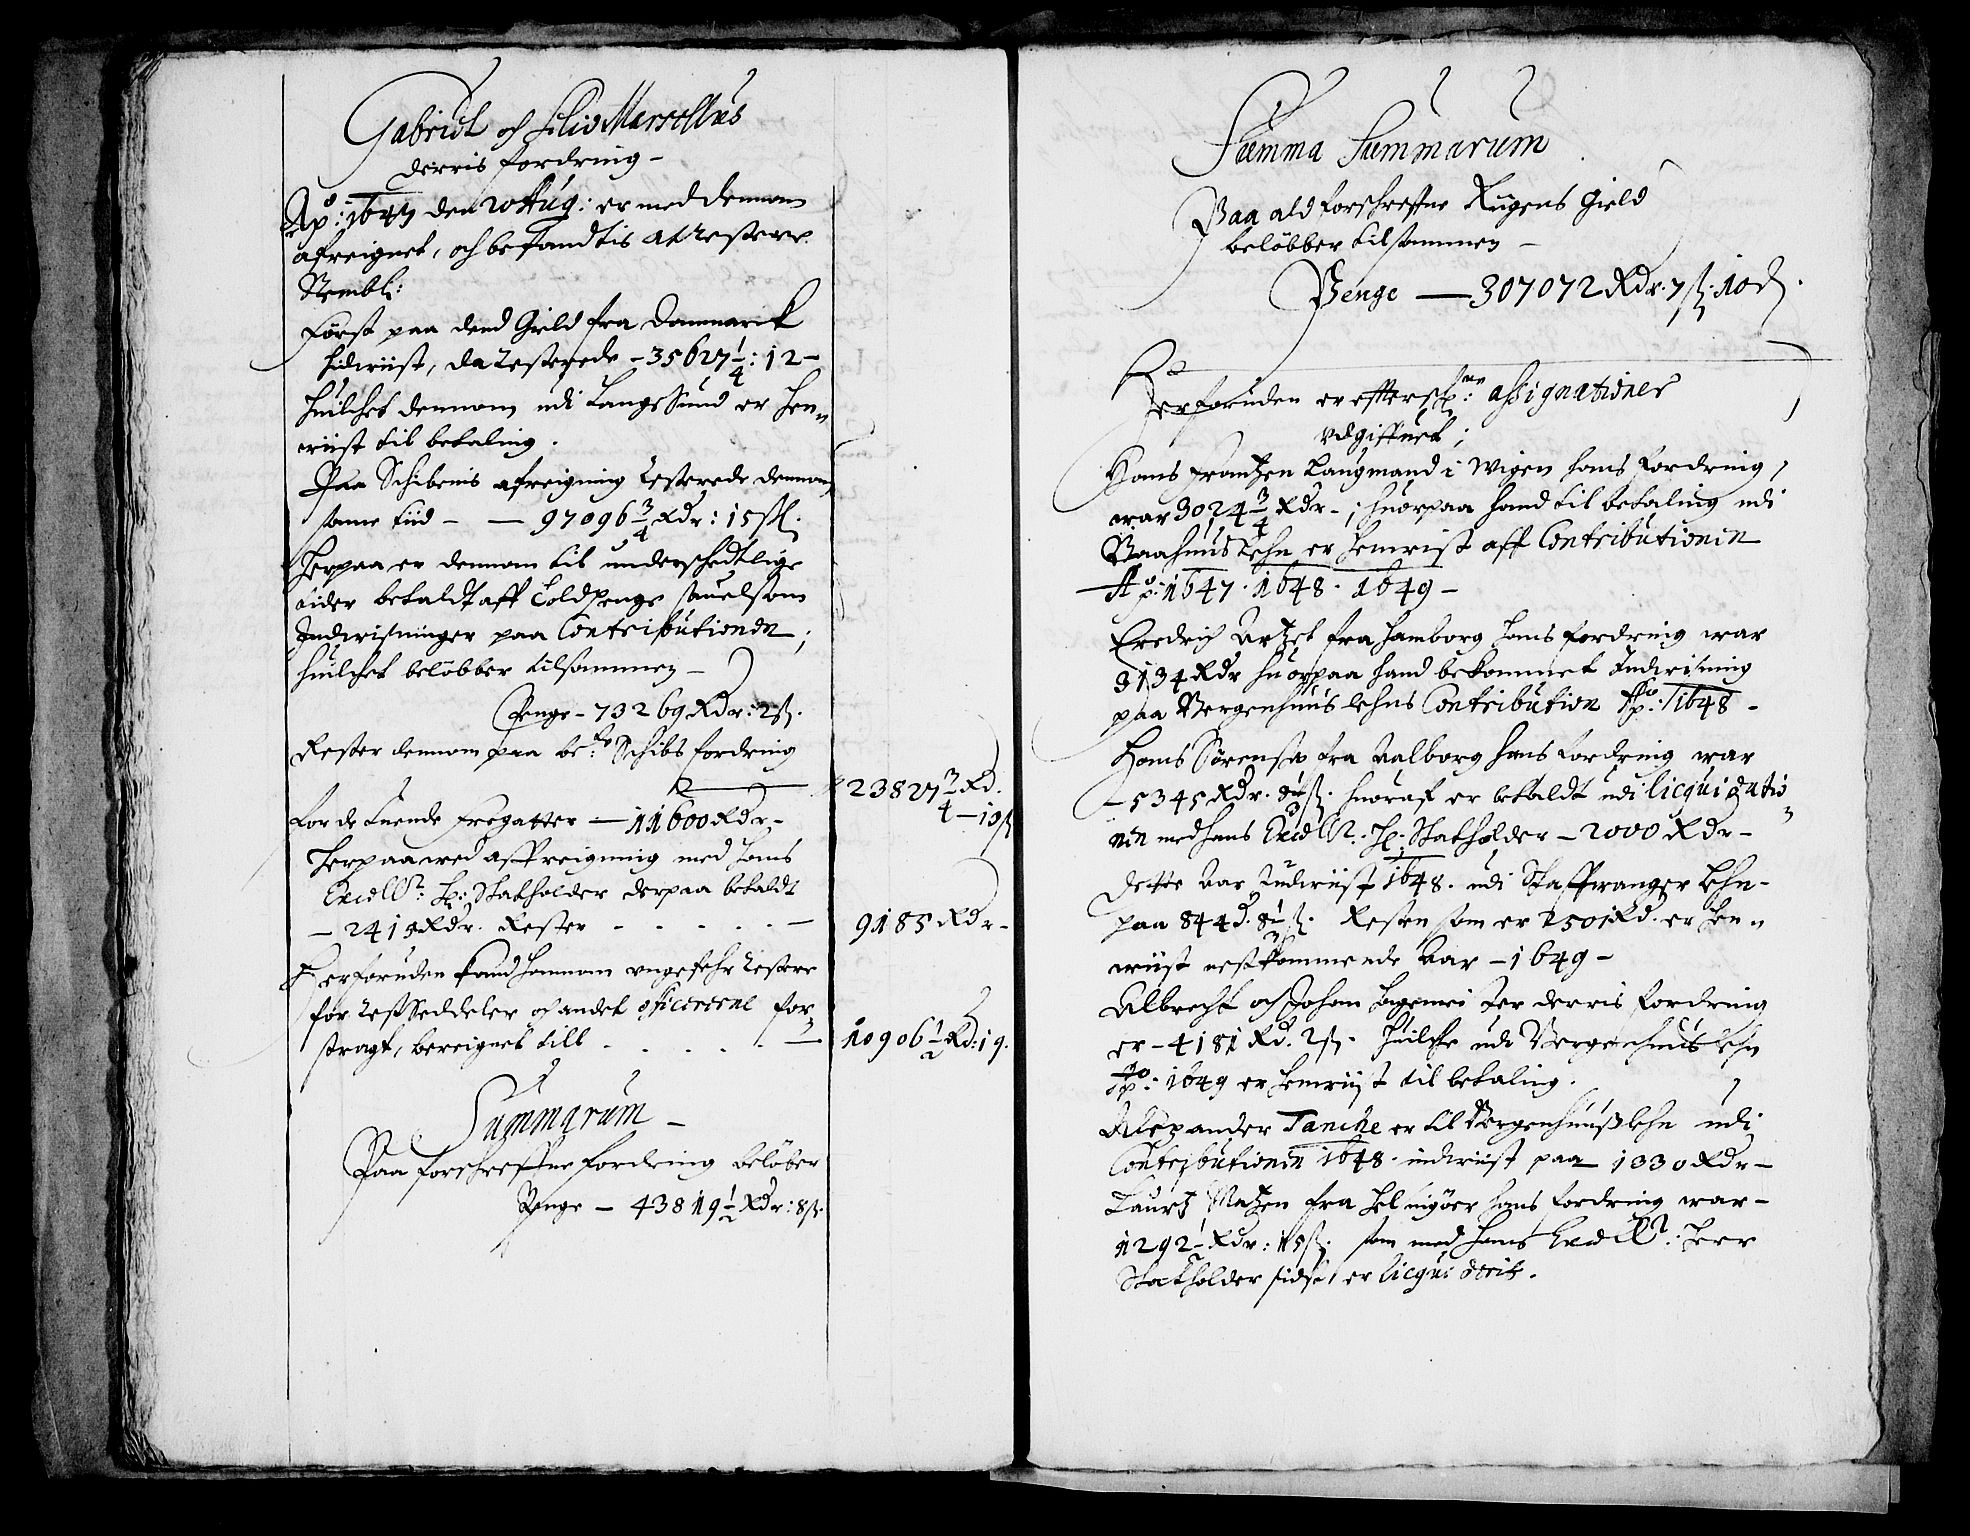 Gabriel och Selio Marsellius
derris fordring –
Ao: 1647 den 20 Aug: er med dennom
afreignet, och befandtis at restere
Nembl:
Først paa dend Gield fra Danmarck
hidwiist, da resterede – 35627 1/4 : 12 –
huilchet dennom udi Langssund er hen-
wiist til betaling.
Paa Schibenis afreigning resterede dennom
samme tiid – — 97096 3/4 Rdr: 15 sk.
Herpaa er dennom til underschedtlige
tider betaldt aff Toldpenge sauelsom
Indwisninger paa Contributionen;
huilchet beløbber tilsammen –
Penge – 73269 Rdr: 2 sk.
Rester dennom paa bete Schibs fordring
23827 3/4 Rd. – 13 sk
For de tuende Fregatter — 11600 Rdr –
Herpaa wed affreigning med hans
Excell: Hr: Statholder derpaa betaldt
– 2415 Rdr. Rester - - - - - — 9185 Rdr –
Herforuden kand hannom ungefehr restere
for restSeddeler och andet officererne for-
stragt, bereignet till - . . . – — 10906 1/2 Rd: 19.
Summarum –
Paa forschreffne fordring beløber
Penge – 43819 1/2 Rdr: 8 sk.
Summa Summarum
Paa ald forschreffne Rigens Gield
beløbber tilsammen –
Penge — 307072 Rdr. 7 sk. 10 d.
Herforuden er effterschne: assignationer
udgiffuet;
Hans Frantzen Laugmand i Wigen hans fordring,
war 3024 3/4 Rdr –; huorpaa hand til betaling udi
Baahuus Lehn er henwist aff Contributionen
Ao: 1647. 1648. 1649 –
Fredrich Artzet fra Hamborg hans fordring war
3134 Rdr huorpaa hand bekommet Indwisning
paa Bergenhuus lehns Contribution Ao: 1648 –
Hans Sørensen fra Aalborg hans fordring war
– 5345 Rdr. 8 1/2 sk. huoraf er betaldt udi licquidatio-
nen med hans Excell: Hr: Statholder – 2000 Rdr –
dette Aar Indwiist 1648. udi Staffwanger Lehn –
paa 844 d. 8 1/2 sk. Resten som er 2501 Rd. er hen-
wiist nestkommende Aar – 1649 –
Albrecht och Johan Hagemeister derris fordring
er – 4181 Rd. 2 sk. huilche udi Bergenhuus lehn
Ao: 1649 er henwiist til betaling.
Alexander Tanche er til Bergenhuuss lehn udi
Contributionen 1648. indwiist paa – 1030 Rdr –
Lauritz Matzen fra Helsingøer hans fordring war –
1292 1/2 Rdr: 15 sk. som med hans Excell: Herr
Statholder sidst er licquiderit.